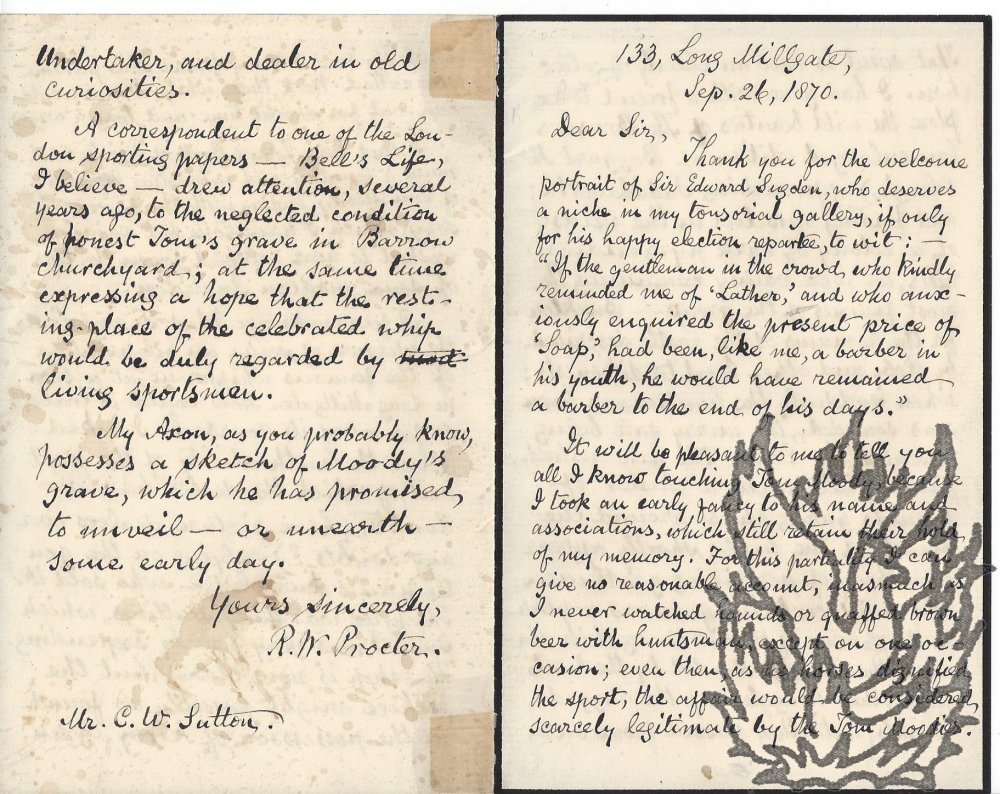 Undertaker, and dealer in old
curiosities.
A correspondent to one of the Lon-
don sporting papers — Bell's Life,
I believe — drew attention, several
years ago, to the neglected condition
of honest Tom's grave in Barrow
churchyard; at the same time
expressing a hope that the rest-
ing-place of the celebrated whip
would be duly regarded by most
living sportsmen.
Mr Axon, as you probably know,
possesses a sketch of Moody's
grave, which he has promised
to unveil — or unearth —
some early day.
Yours sincerely,
R. W. Procter.
Mr. C. W. Sutton.
133, Long Millgate,
Sep. 26, 1870.
Dear Sir,
Thank you for the welcome
portrait of Sir Edward Sugden, who deserves
a niche in my tonsorial gallery, if only
for his happy election repartee, to wit: —
"If the gentleman in the crowd, who kindly
reminded me of 'Lather,' and who anx-
iously enquired the present price of
'Soap,' had been, like me, a barber in
his youth, he would have remained
a barber to the end of his days."
It will be pleasant to me to tell you
all I know touching Tom Moody, because
I took an early fancy to his name and
associations, which still retain their hold
of my memory. For this partiality I can
give no reasonable account, inasmuch as
I never watched hounds or quaffed brown
beer with huntsman, except on one oc-
casion; even then, as no horses dignified
the sport, the affair would be considered
scarcely legitimate by the Tom Moodies.